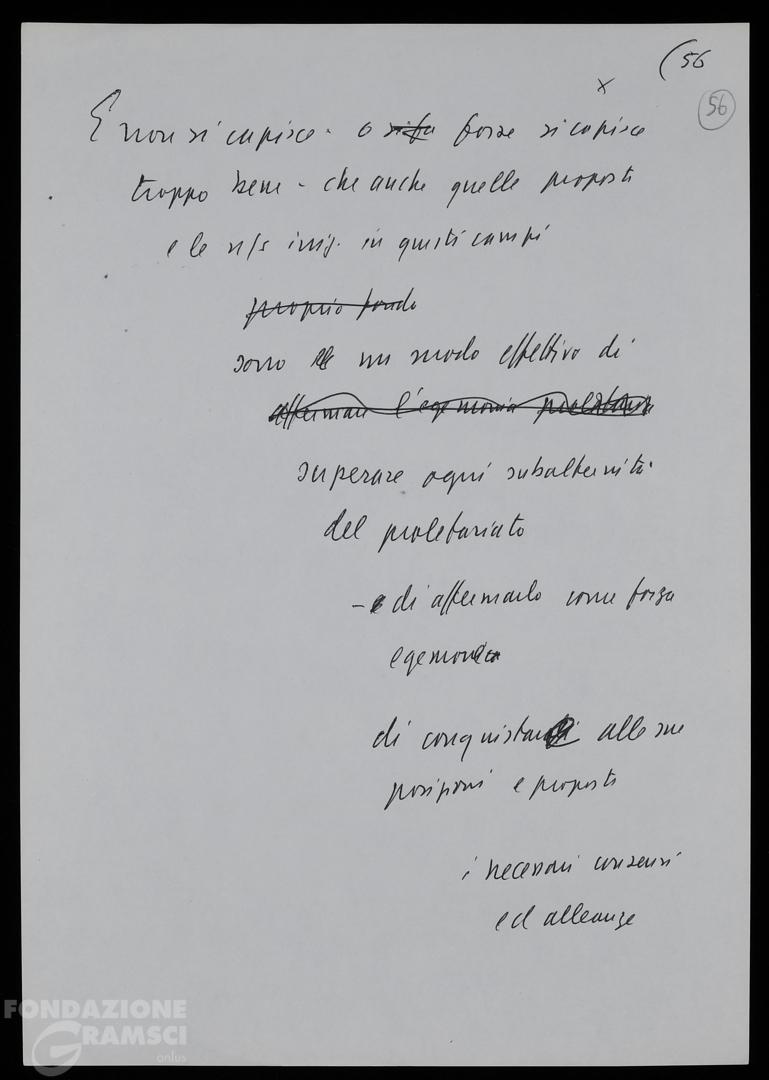 (56
x
56
E non si capisce - o forse si capisce
troppo bene - che anche quelle proposte
e le n/s iniz. in questi campi
proprio
sono un modo effettivo di
affermare l'egemonia proletaria
superare ogni subalternità
del proletariato
- e di affermarlo come forza
egemonica
di conquistare alle sue
posizioni e proposte
i necessari consensi
ed alleanze
FONDAZIONE
GRAMSCI
onlus